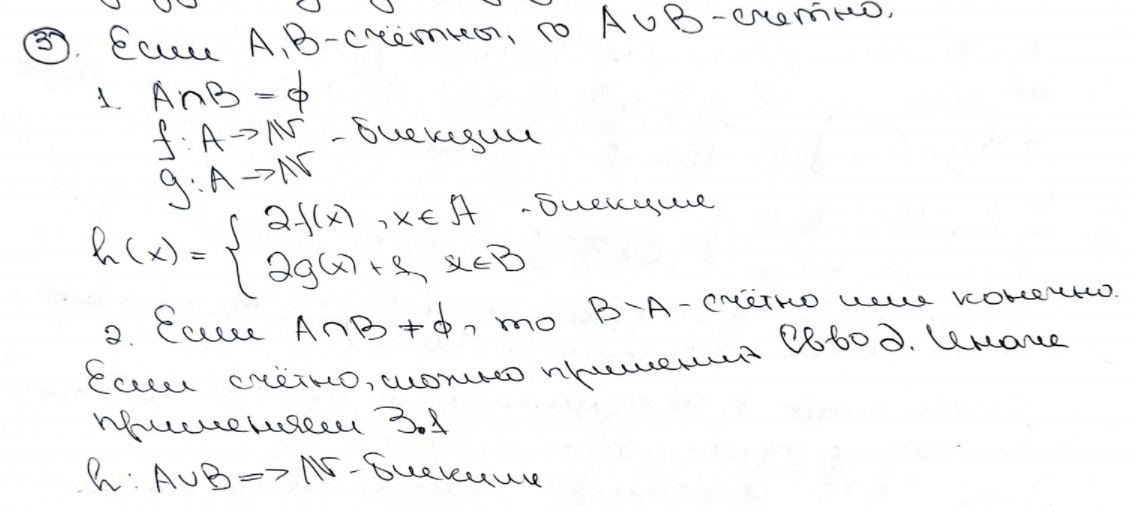 ③. Если A, B - счётны, то A∪B - счетно.
1 A∩B = ϕ
f: A → N - биекции
g: A → N
h(x) = { 2f(x), x ∈ A - биекция
2g(x) + 1, x ∈ B
2. Если A∩B ≠ ϕ, то B∖A - счётно или конечно.
Если счётно, можно применить . Иначе
применяем 3.1
h: A∪B => N - биекция